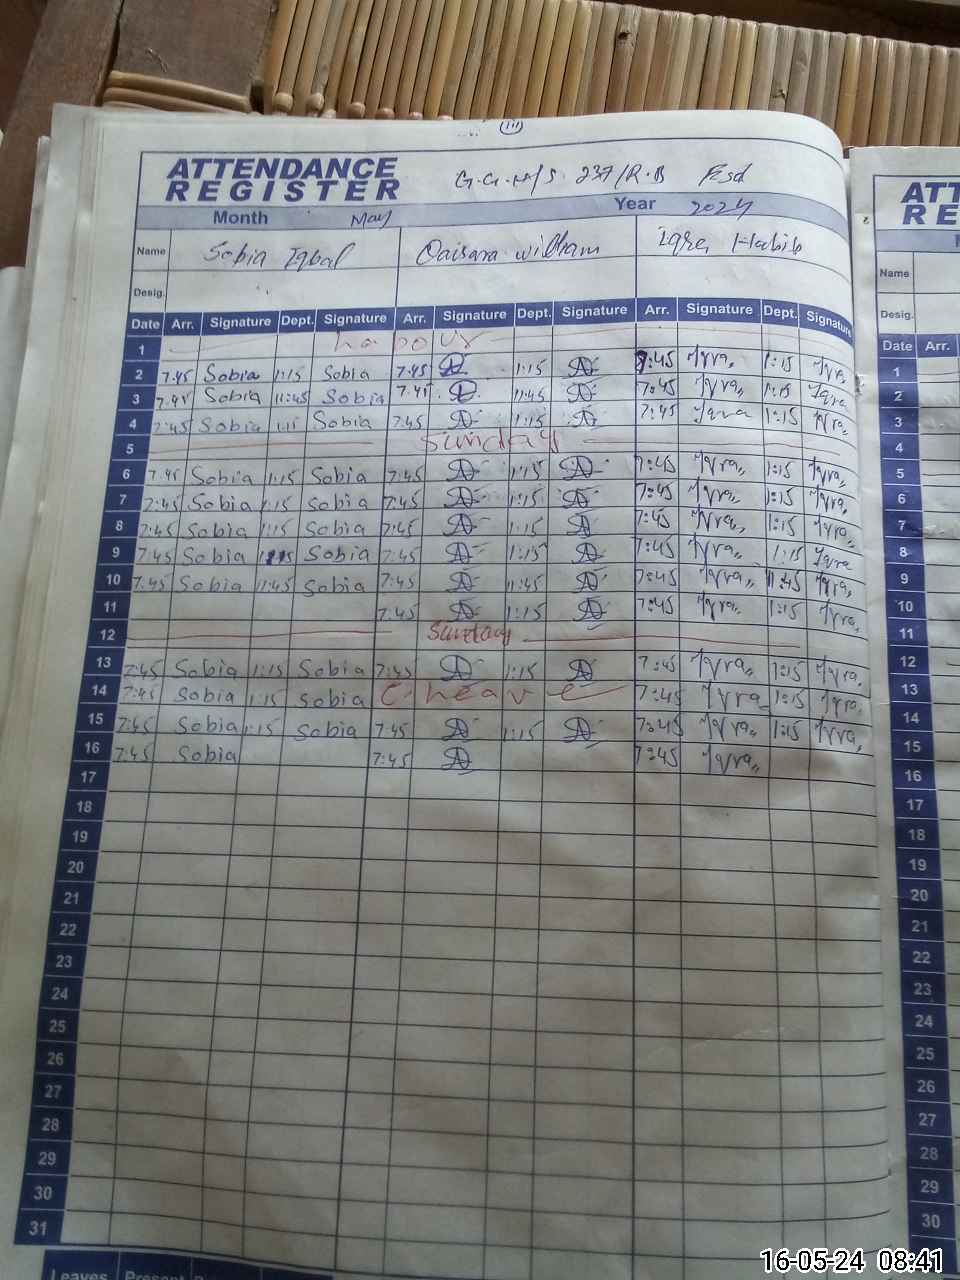 ATTENDANCE
REGISTER
G.G.M/S 237/R.B Fsd
Month May Year 2024
Name Sobia Iqbal Iqra Habib
Desig.
Date Arr. Signature Dept. Signature Arr. Signature Dept. Signature Arr. Signature Dept. Signature
1 Labour
2 7:45 Sobia 1:15 Sobia 7:45 1:15 7:45 Iqra 1:15 Iqra
3 7:45 Sobia 11:45 Sobia 7:45 11:45 7:45 Iqra Iqra
4 7:45 Sobia 1:15 Sobia 7:45 1:15 7:45 Iqra 1:15 Iqra
5 Sunday
6 7:45 Sobia 1:15 Sobia 7:45 1:15 7:45 Iqra 1:15 Iqra
7 7:45 Sobia 1:15 Sobia 7:45 1:15 7:45 Iqra 1:15 Iqra
8 7:45 Sobia 1:15 Sobia 7:45 1:15 7:45 Iqra 1:15 Iqra
9 7:45 Sobia 1:15 Sobia 7:45 1:15 7:45 Iqra 1:15 Iqra
10 7:45 Sobia 11:45 Sobia 7:45 11:45 7:45 Iqra 11:45 Iqra
11 7:45 1:15 7:45 Iqra 1:15 Iqra
12 Sunday
13 7:45 Sobia 1:15 Sobia 7:45 1:15 7:45 Iqra 1:15 Iqra
14 7:45 Sobia 1:15 Sobia C. Leave 7:45 Iqra 1:15 Iqra
15 7:45 Sobia 1:15 Sobia 7:45 1:15 7:45 Iqra 1:15 Iqra
16 7:45 Sobia 7:45 7:45 Iqra
17
18
19
20
21
22
23
24
25
26
27
28
29
30
31
Leaves Present
ATT
RE
Name
Desig.
Date Arr.
1
2
3
4
5
6
7
8
9
10
11
12
13
14
15
16
17
18
19
20
21
22
23
24
25
26
27
28
29
30
16-05-24 08:41